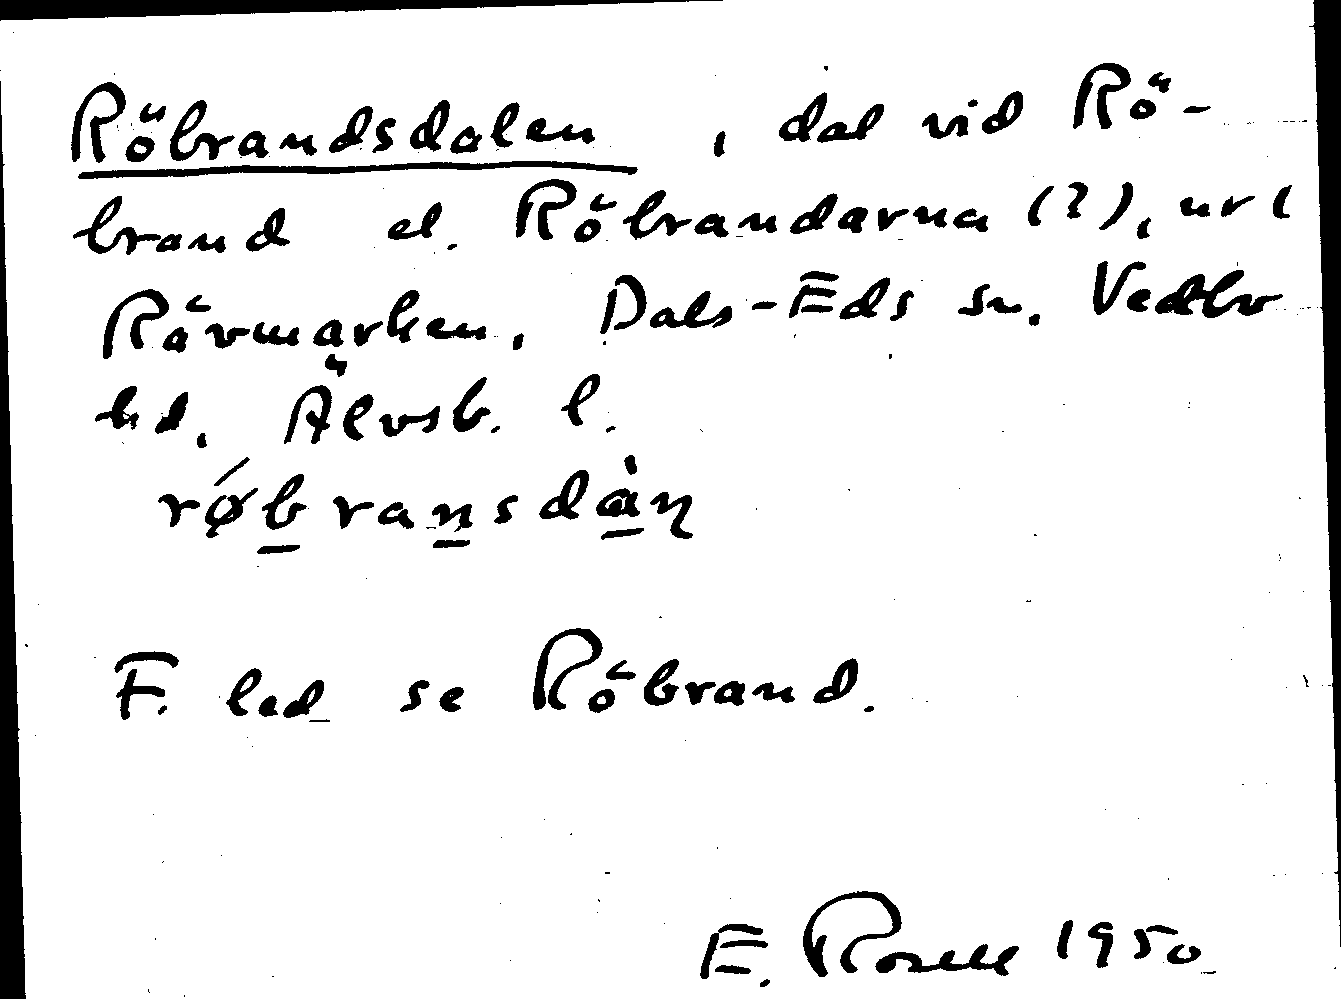 Röbrandsdalen, dal vid Rö-
brand el. Röbrandarna (?), ur
Rävmarken, Dals-Eds sn. Vedbo
hd. Älvsb. l.
røbransdàn
F. led se Röbrand.
E. Rosell 1950